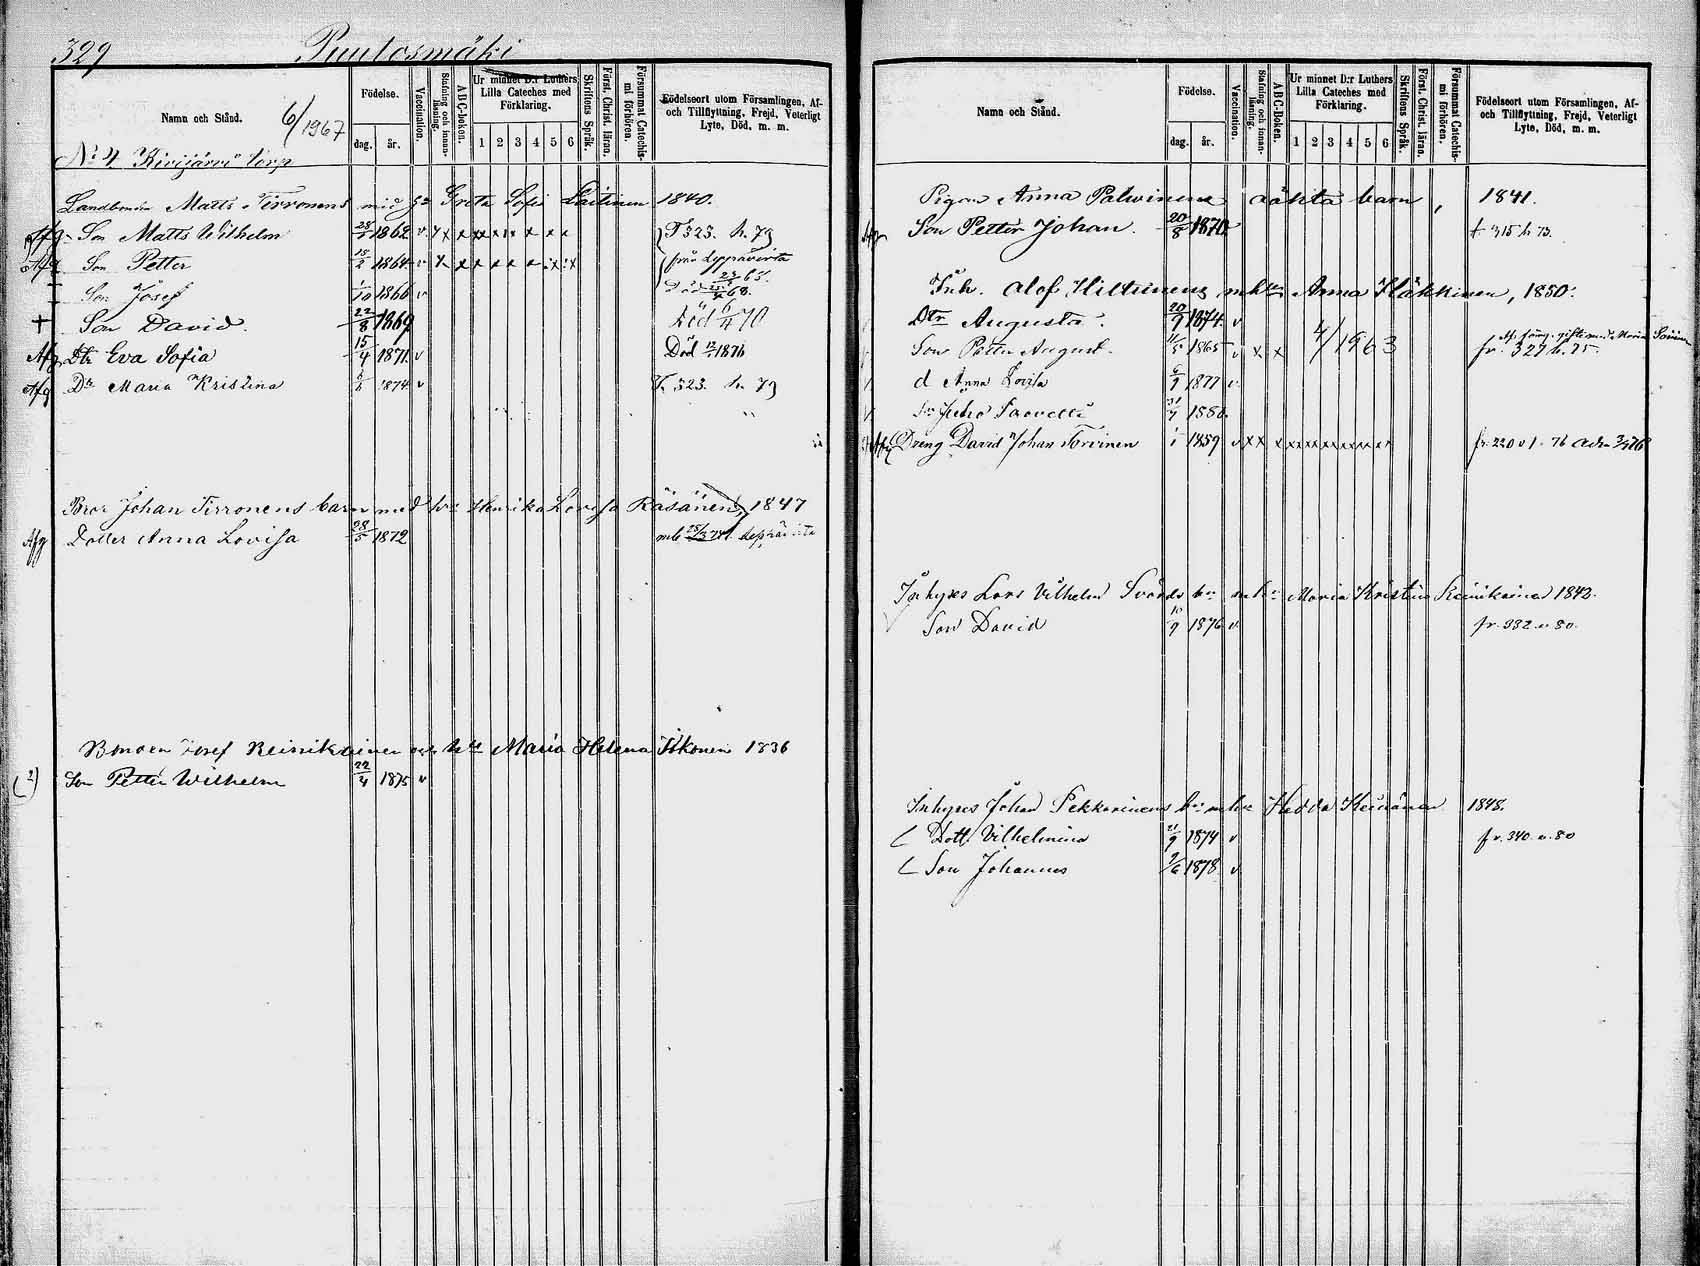 329 Puutosmäki
Namn och Stånd. 6/1967
Födelse. dag. år.
Vaccination.
Stafning och innan-läsning.
A B C-boken.
Ur minnet D:r Luthers Lilla Cateches med Förklaring.
1 2 3 4 5 6
Skriftens Språk.
Först. Christ. läran.
Försummat Catechis-mi förhören.
Födelseort utom Församlingen, Af- och Tillflyttning, Frejd, Veterligt Lyte, Död, m. m.
No 4 Kivijärvi torp
Landbonden Matts Tirronens med Greta Sofia Laitinen 1840.
Afg Son Matts Wilhelm 1862 v x x x x x x x x x T 523. h. 79
Afg Son Petter 15/2 1864 v x x x x x x x x x från Leppävirta
Son Josef 1/10 1866 v
+ Son David. 22/8 1869 Död 6/4 70
Afg Dtr Eva Sofia 15/4 1871 v Död 1876
Afg Dr Maria Kristina 1874 v T. 523. h. 79
Bror Johan Tirronens barn med h:u Henrika Lovisa Räsänen, 1847
Afg Dotter Anna Lovisa 28/5 1872 Leppävirta
Josef Reinikainen och h:u Maria Helena Iskonen 1836
Son Petter Wilhelm 22/4 1875 v
Namn och Stånd.
Födelse. dag. år.
Vaccination.
Stafning och innan-läsning.
A B C-boken.
Ur minnet D:r Luthers Lilla Cateches med Förklaring.
1 2 3 4 5 6
Skriftens Språk.
Först. Christ. läran.
Försummat Catechis-mi förhören.
Födelseort utom Församlingen, Af- och Tillflyttning, Frejd, Veterligt Lyte, Död, m. m.
Pigan Anna Palvinens oäkta barn, 1841.
Afg Son Petter Johan. 20/8 1870. t 315 h 73.
Inh. Alof Hiltunens Anna Häkkinen, 1850.
Dtr Augusta. 20/9 1874. v
Son Petter August. 11/5 1865 v x x 4/1963 fr. 327 h. 75.
d Anna Lovisa 6/9 1877 v.
Sn Juho Taavetti 1880.
Dräng David Johan Torvinen 1/1 1859 v x x x x x x x x x x x
Inhyses Lars Vilhelm Maria Kristina Reinikainen 1842.
Son David 10/9 1876 v. fr. 332. v. 80.
Inhyses Johan Pekkarinens Hedda 1848.
Dott. Vilhelmina 21/9 1874 v fr. 340. v. 80
Son Johannes 9/6 1878 v